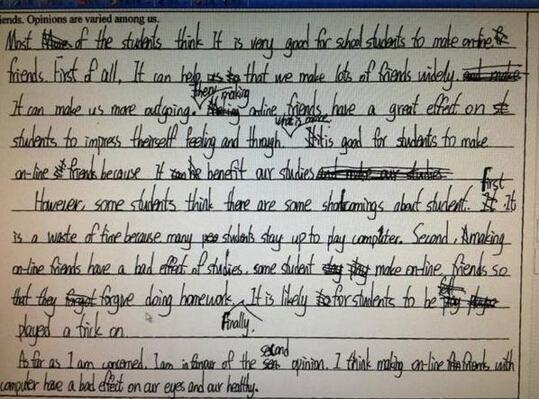 iends. Opinions are varied among us.
Most of the students think It is very good for school students to make on-line
friends. First of all, It can help us that we make lots of friends widely.
It can make us more outgoing. then, making on-line friends have a great effect on
students to impress theirself feeling and through. what's more, It is good for students to make
on-line friends because It can benefit our studies
However, some students think there are some shortcomings about student. First, It
is a waste of time because many students stay up to play computer. Second, making
on-line friends have a bad effect of studies, some student make on-line friends so
that they forgive doing homework. Finally, It is likely for students to be
played a trick on.
As far as I am concerned, I am in favour of the second opinion. I think making on-line friends with
computer have a bad effect on our eyes and our healthy.